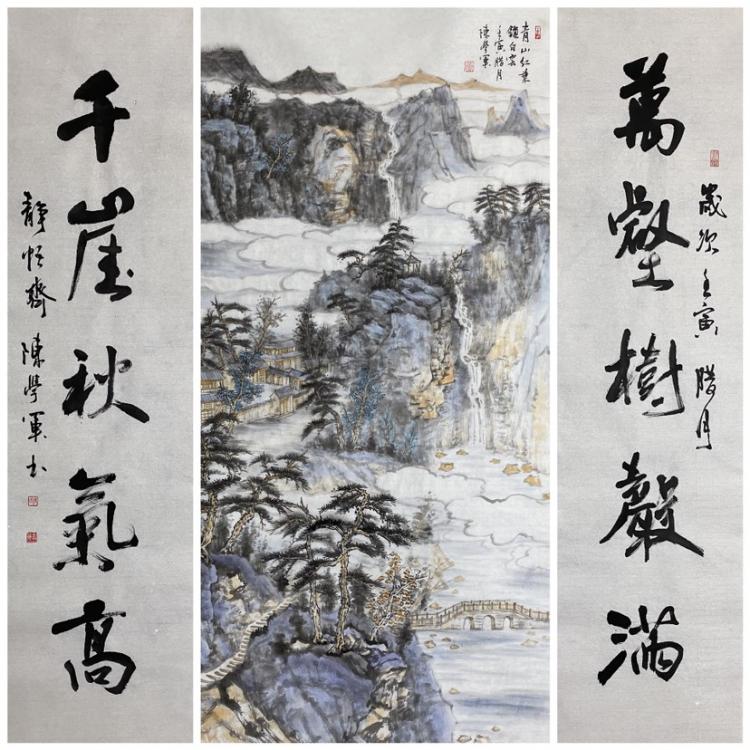 萬壑樹聲滿
歲次壬寅 腊月
青山红葉
鎖白雲
壬寅腊月
陳學軍
千崖秋氣高
靜怡齋 陳學軍书